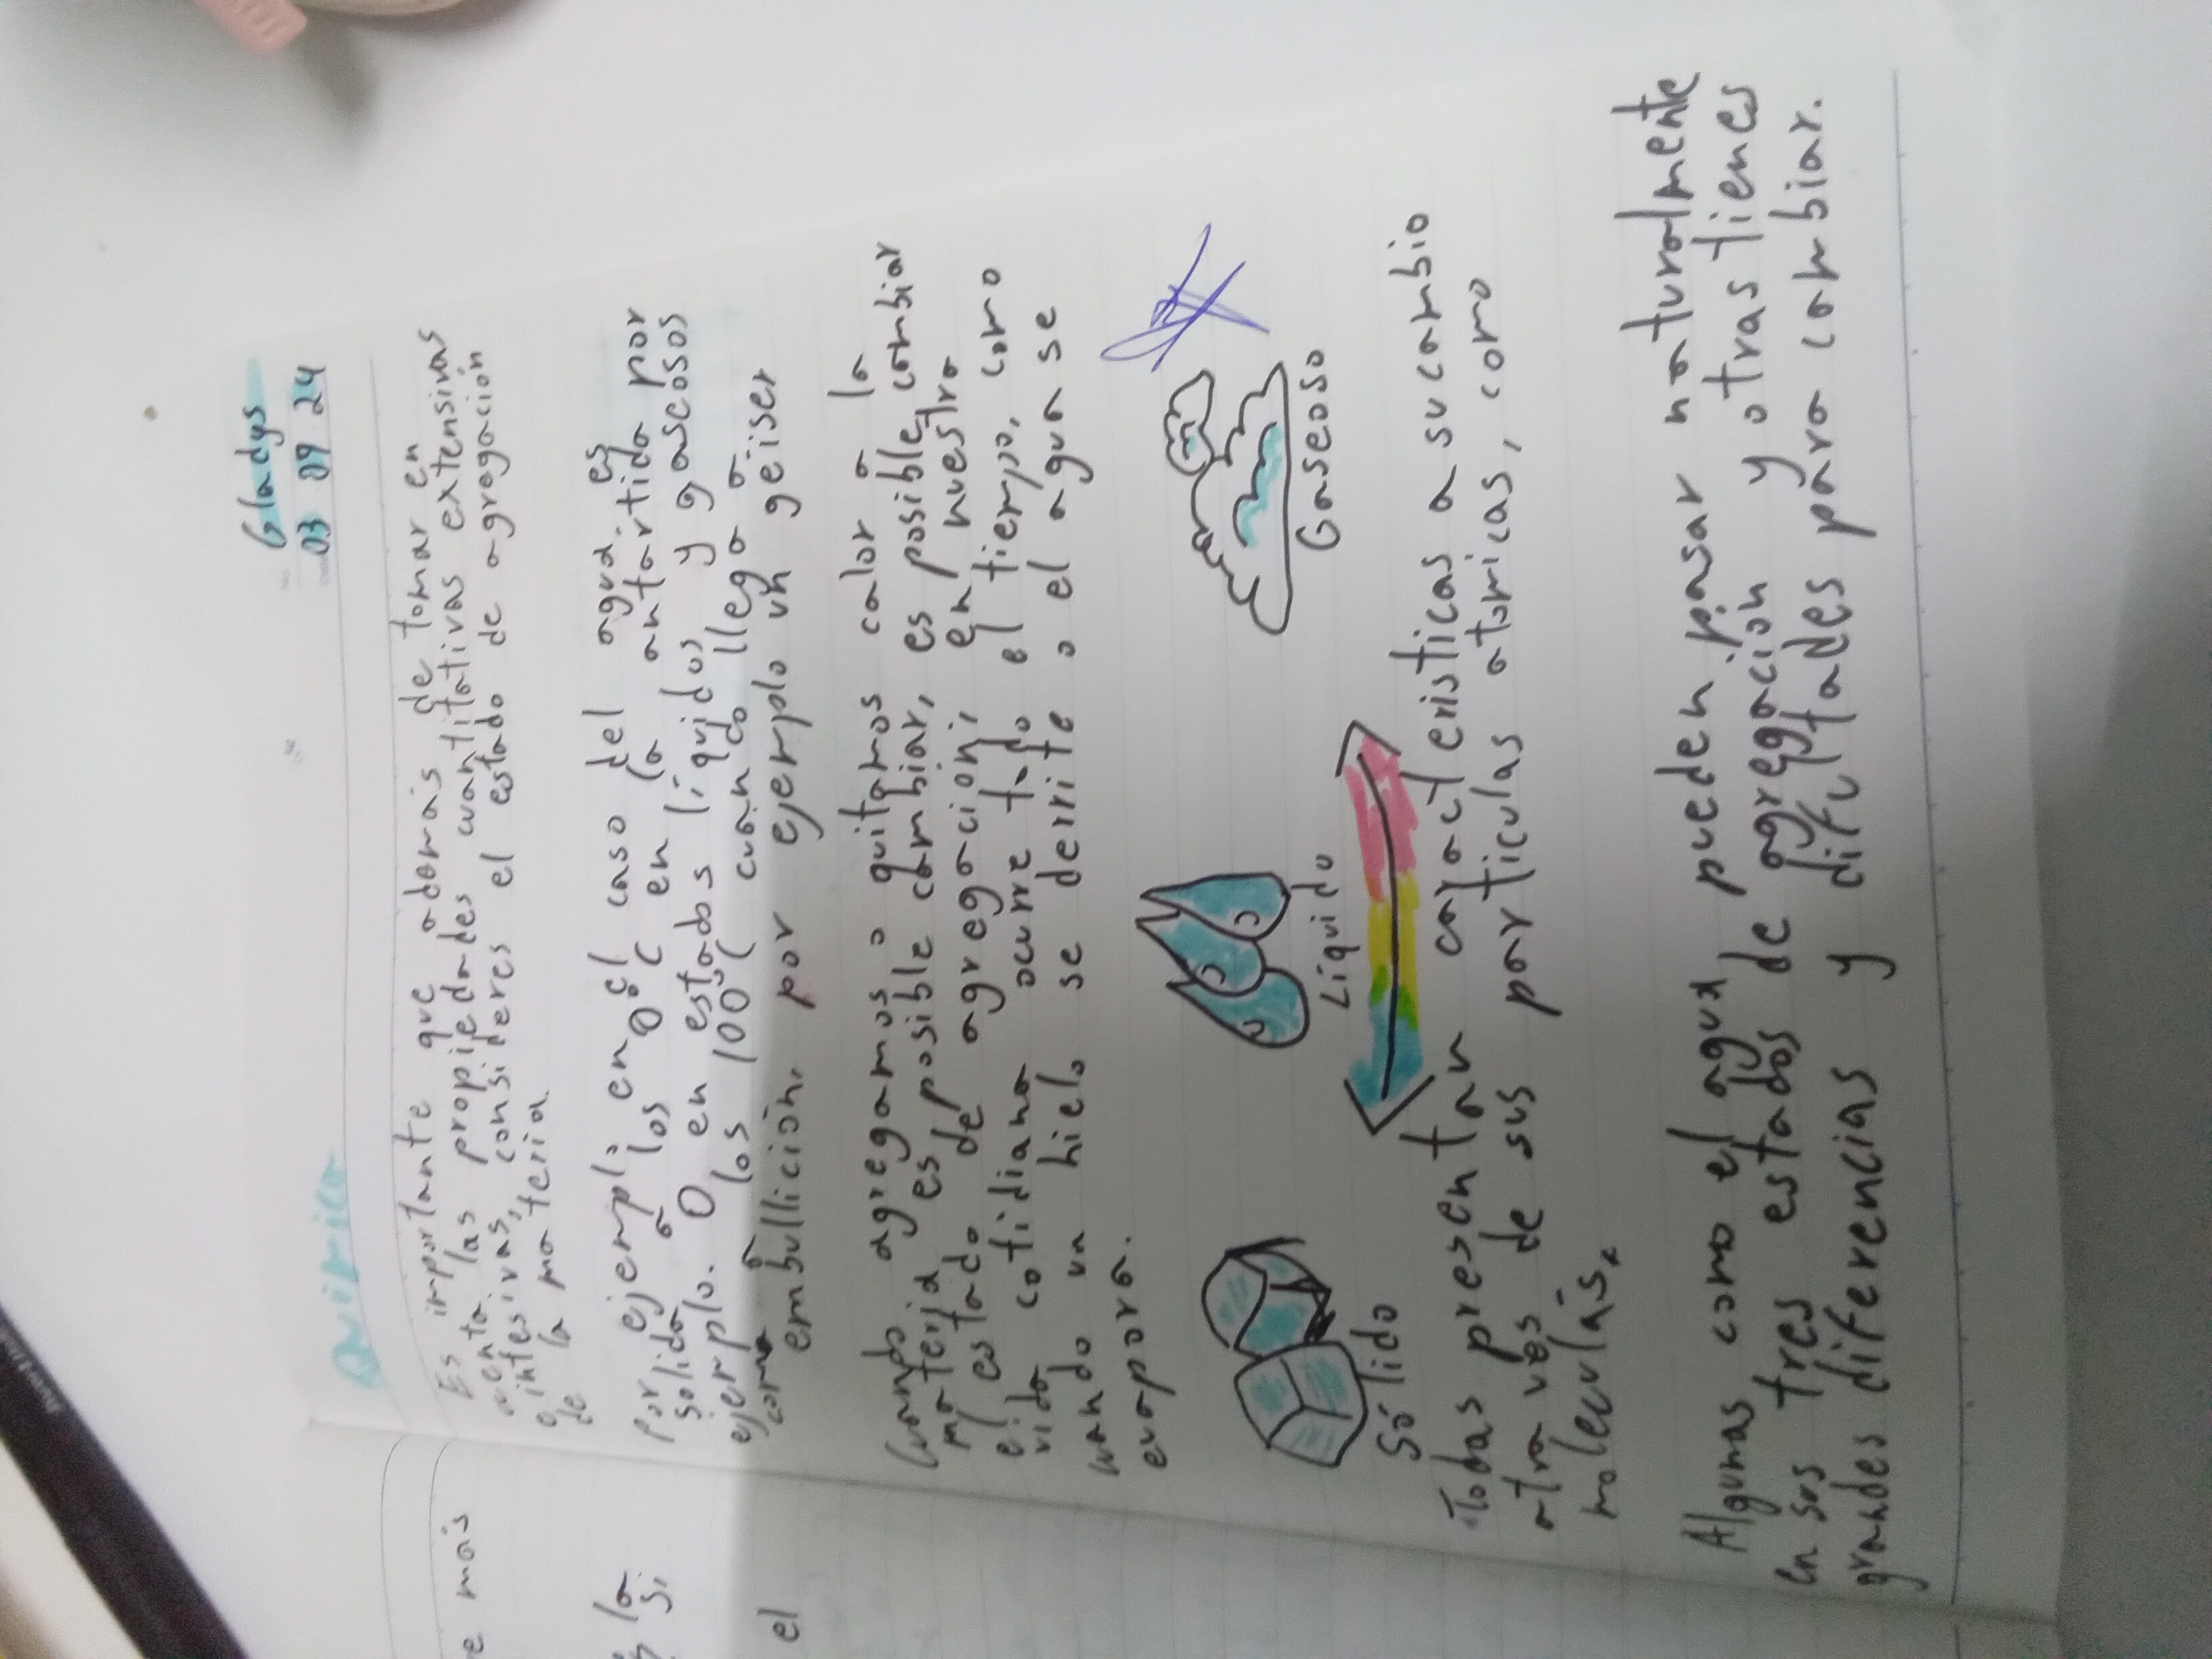 Química
Gladys
03 09 24
Es importante que además de tomar en
cuenta las propiedades cuantitativas extensivas
e intesivas, consideres el estado de agregación
de la materia.
Por ejemplo en el caso del agua es
solida a los 0°C en la antartida por
ejemplo. O en estados líquidos y gaseosos
como a los 100°C cuando llega a
embullición, por ejemplo un géiser
Cuando agregamos o quitamos calor a la
materia es posible cambiar, es posible cambiar
el estado de agregación, en nuestro
vida cotidiana ocurre todo el tiempo, como
uando un hielo se derrite o el agua se
evapora.
Sólido
Líquido
Gaseoso
Todas presentan caracteristicas a su cambio
atra vés de sus particulas atomicas, como
moleculas.
Algunas como el agua pueden pasar naturalmente
en sus tres estados de agregación y otras tienes
grandes diferencias y difultades para cambiar.
e más
la
si
el